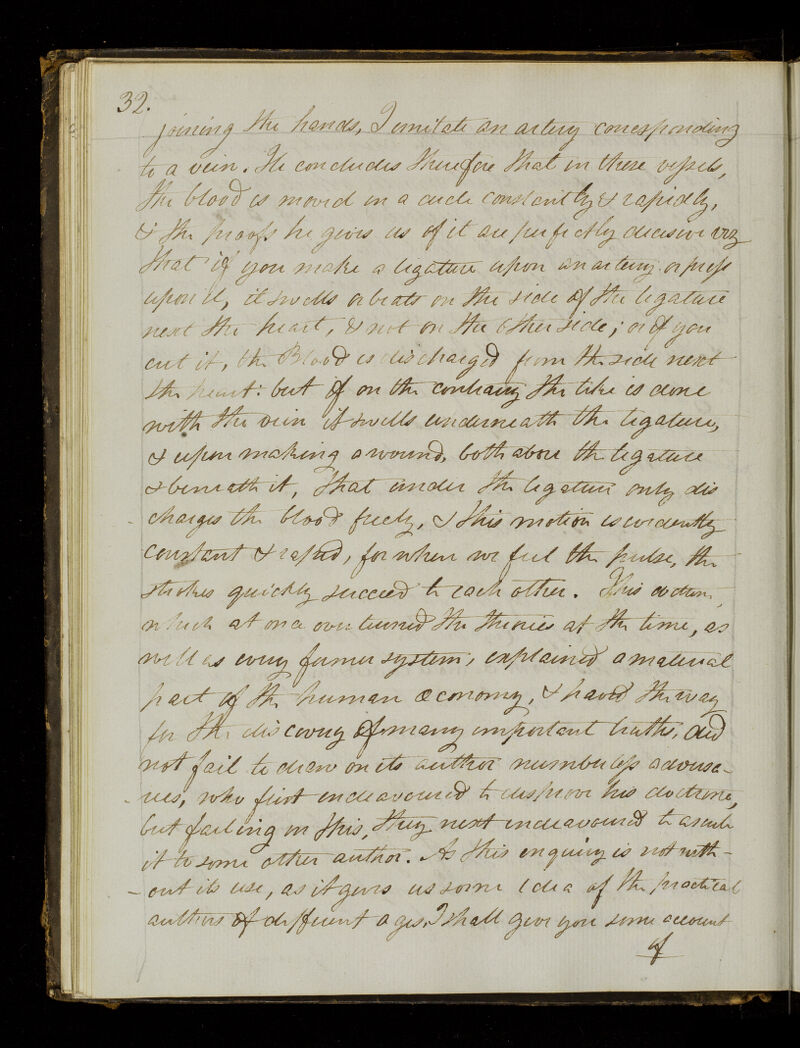 32.
joining the hands, I imitate an artery corresponding
to a vein. He concludes therefore that in these vessels,
the blood is moved in a circle constantly & rapidly,
& the proofs he gives us of it are perfectly decisive viz
that if you make a ligature upon an artery or press
upon it, it swells or beats on the side of the ligature
next the heart, & not on the other side; or if you
cut it, the Blood is discharged from the side next
the heart: but if on the contrary the like is done
with the vein it swells underneath the ligature,
& upon making a wound, both above the ligature
& beneath it, that under the ligature only dis
charges the blood freely, & this motion is evidently
constant & rapid, for when we feel the pulse, the
strokes quickly succeed to each other. This doctrine,
which at once overturned the theories at the time, as
well as every former system, explained a material
part of the human œconomy, & paved the way
for the discovery of many important truths, did
not fail to draw on its author numberless adversa-
ries, who first endeavoured to disprove his doctrine,
but failing in this, they next endeavoured to ascribe
it to some other author. As this enquiry is not with-
out its use, as it gives us some idea of the practical
authors of different ages, I shall give you some account
of